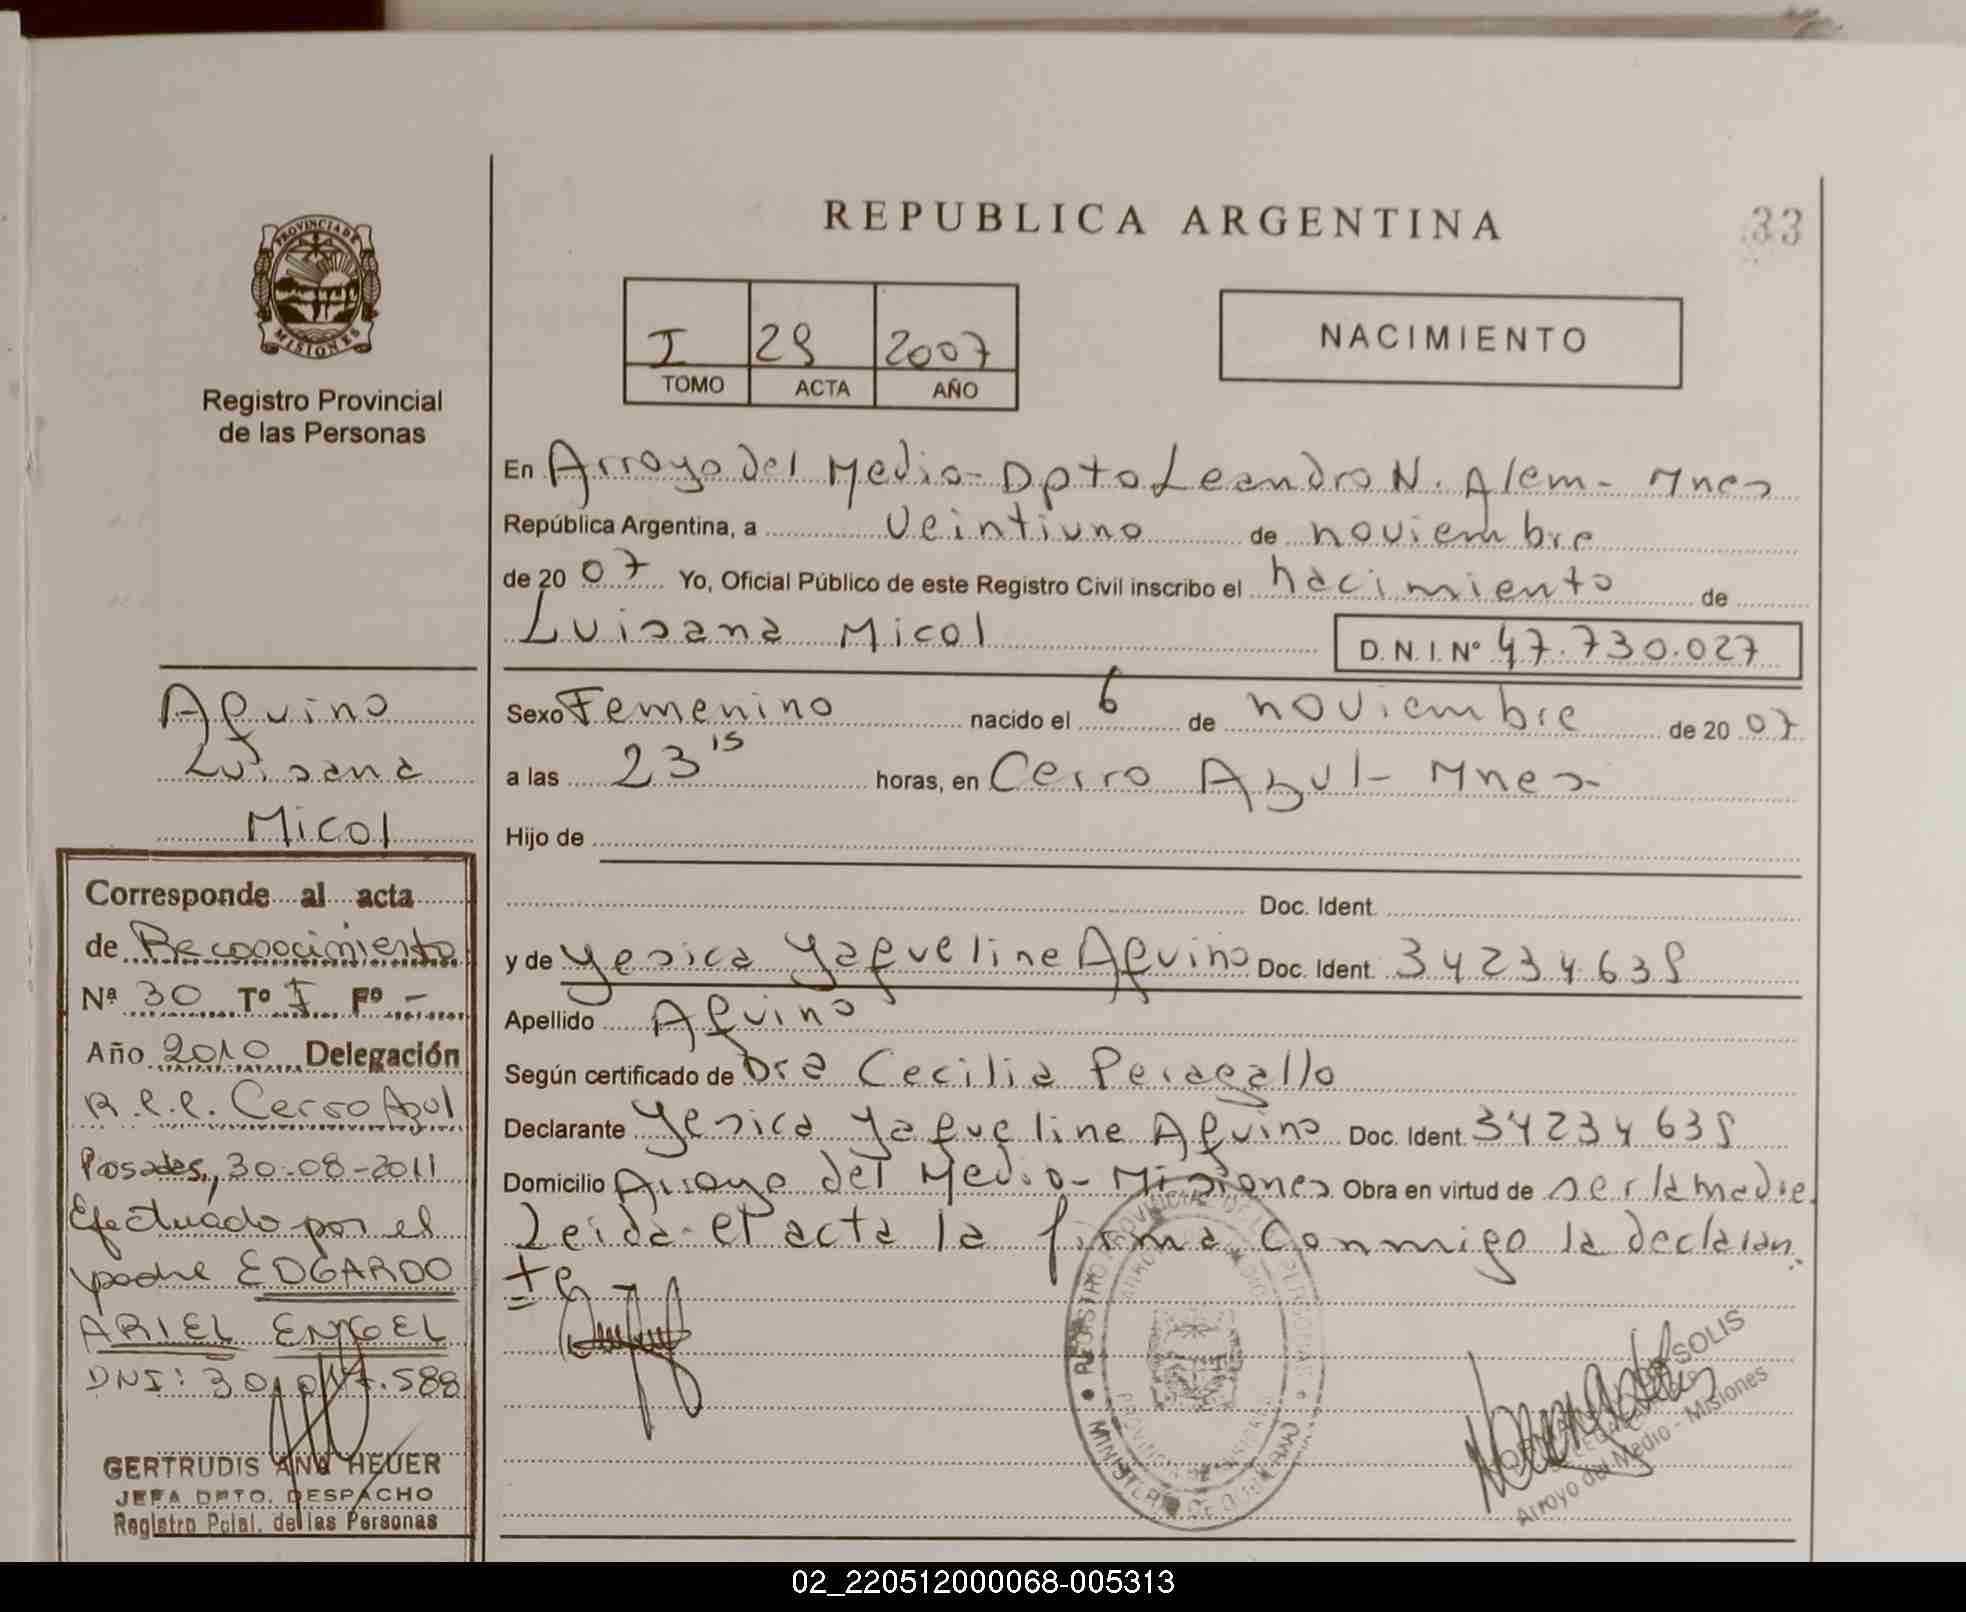 REPUBLICA ARGENTINA
33
PROVINCIA DE
MISIONES
Registro Provincial
de las Personas
I 29 2007
TOMO ACTA AÑO
NACIMIENTO
En Arroyo del Medio - Dpto Leandro N. Alem - Mnes
República Argentina, a veintiuno de noviembre
de 20 07 Yo, Oficial Público de este Registro Civil inscribo el nacimiento de
Luisana Micol D.N.I. Nº 47.730.027
Sexo Femenino nacido el 6 de noviembre de 20 07
a las 23 15 horas, en Cerro Azul - Mnes
Hijo de
Doc. Ident.
y de Yesica Yaqueline Aquino Doc. Ident. 34234639
Apellido Aquino
Según certificado de Dra Cecilia Peragallo
Declarante Yesica Yaqueline Aquino Doc. Ident. 34234639
Domicilio Arroyo del Medio - Misiones Obra en virtud de ser la madre.
Leida el acta la firma conmigo la declaran
te
Aquino
Luisana
Micol
Corresponde al acta
de Reconocimiento
Nº 30 Tº I Fº -
Año 2010 Delegación
R.P.P. Cerro Azul
Posadas, 30-08-2011
Efectuado por el
padre EDGARDO
ARIEL ENGEL
DNI: 30.017.588
GERTRUDIS ANA HEUER
JEFA DPTO. DESPACHO
Registro Pcial. de las Personas
REGISTRO PROVINCIAL DE LAS PERSONAS
MINISTERIO DE GOBIERNO
SOLIS
Arroyo del Medio - Misiones
02_220512000068-005313